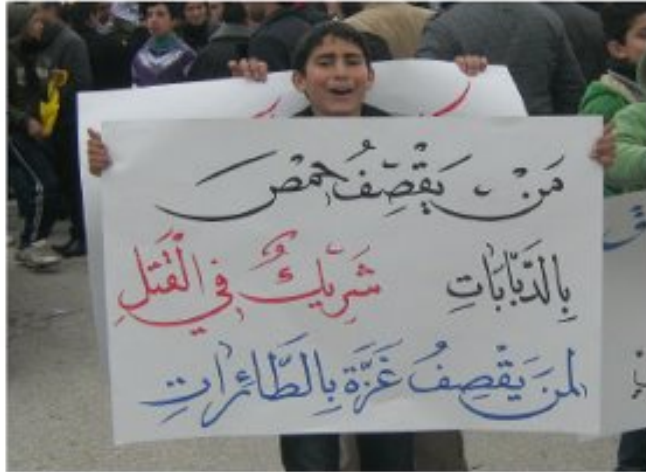 مَنْ يَقْصِفُ حِمْصَ
بِالدَّبَّابَاتِ شَرِيكٌ فِي الْقَتْلِ
لِمَنْ يَقْصِفُ غَزَّةَ بِالطَّائِرَاتِ